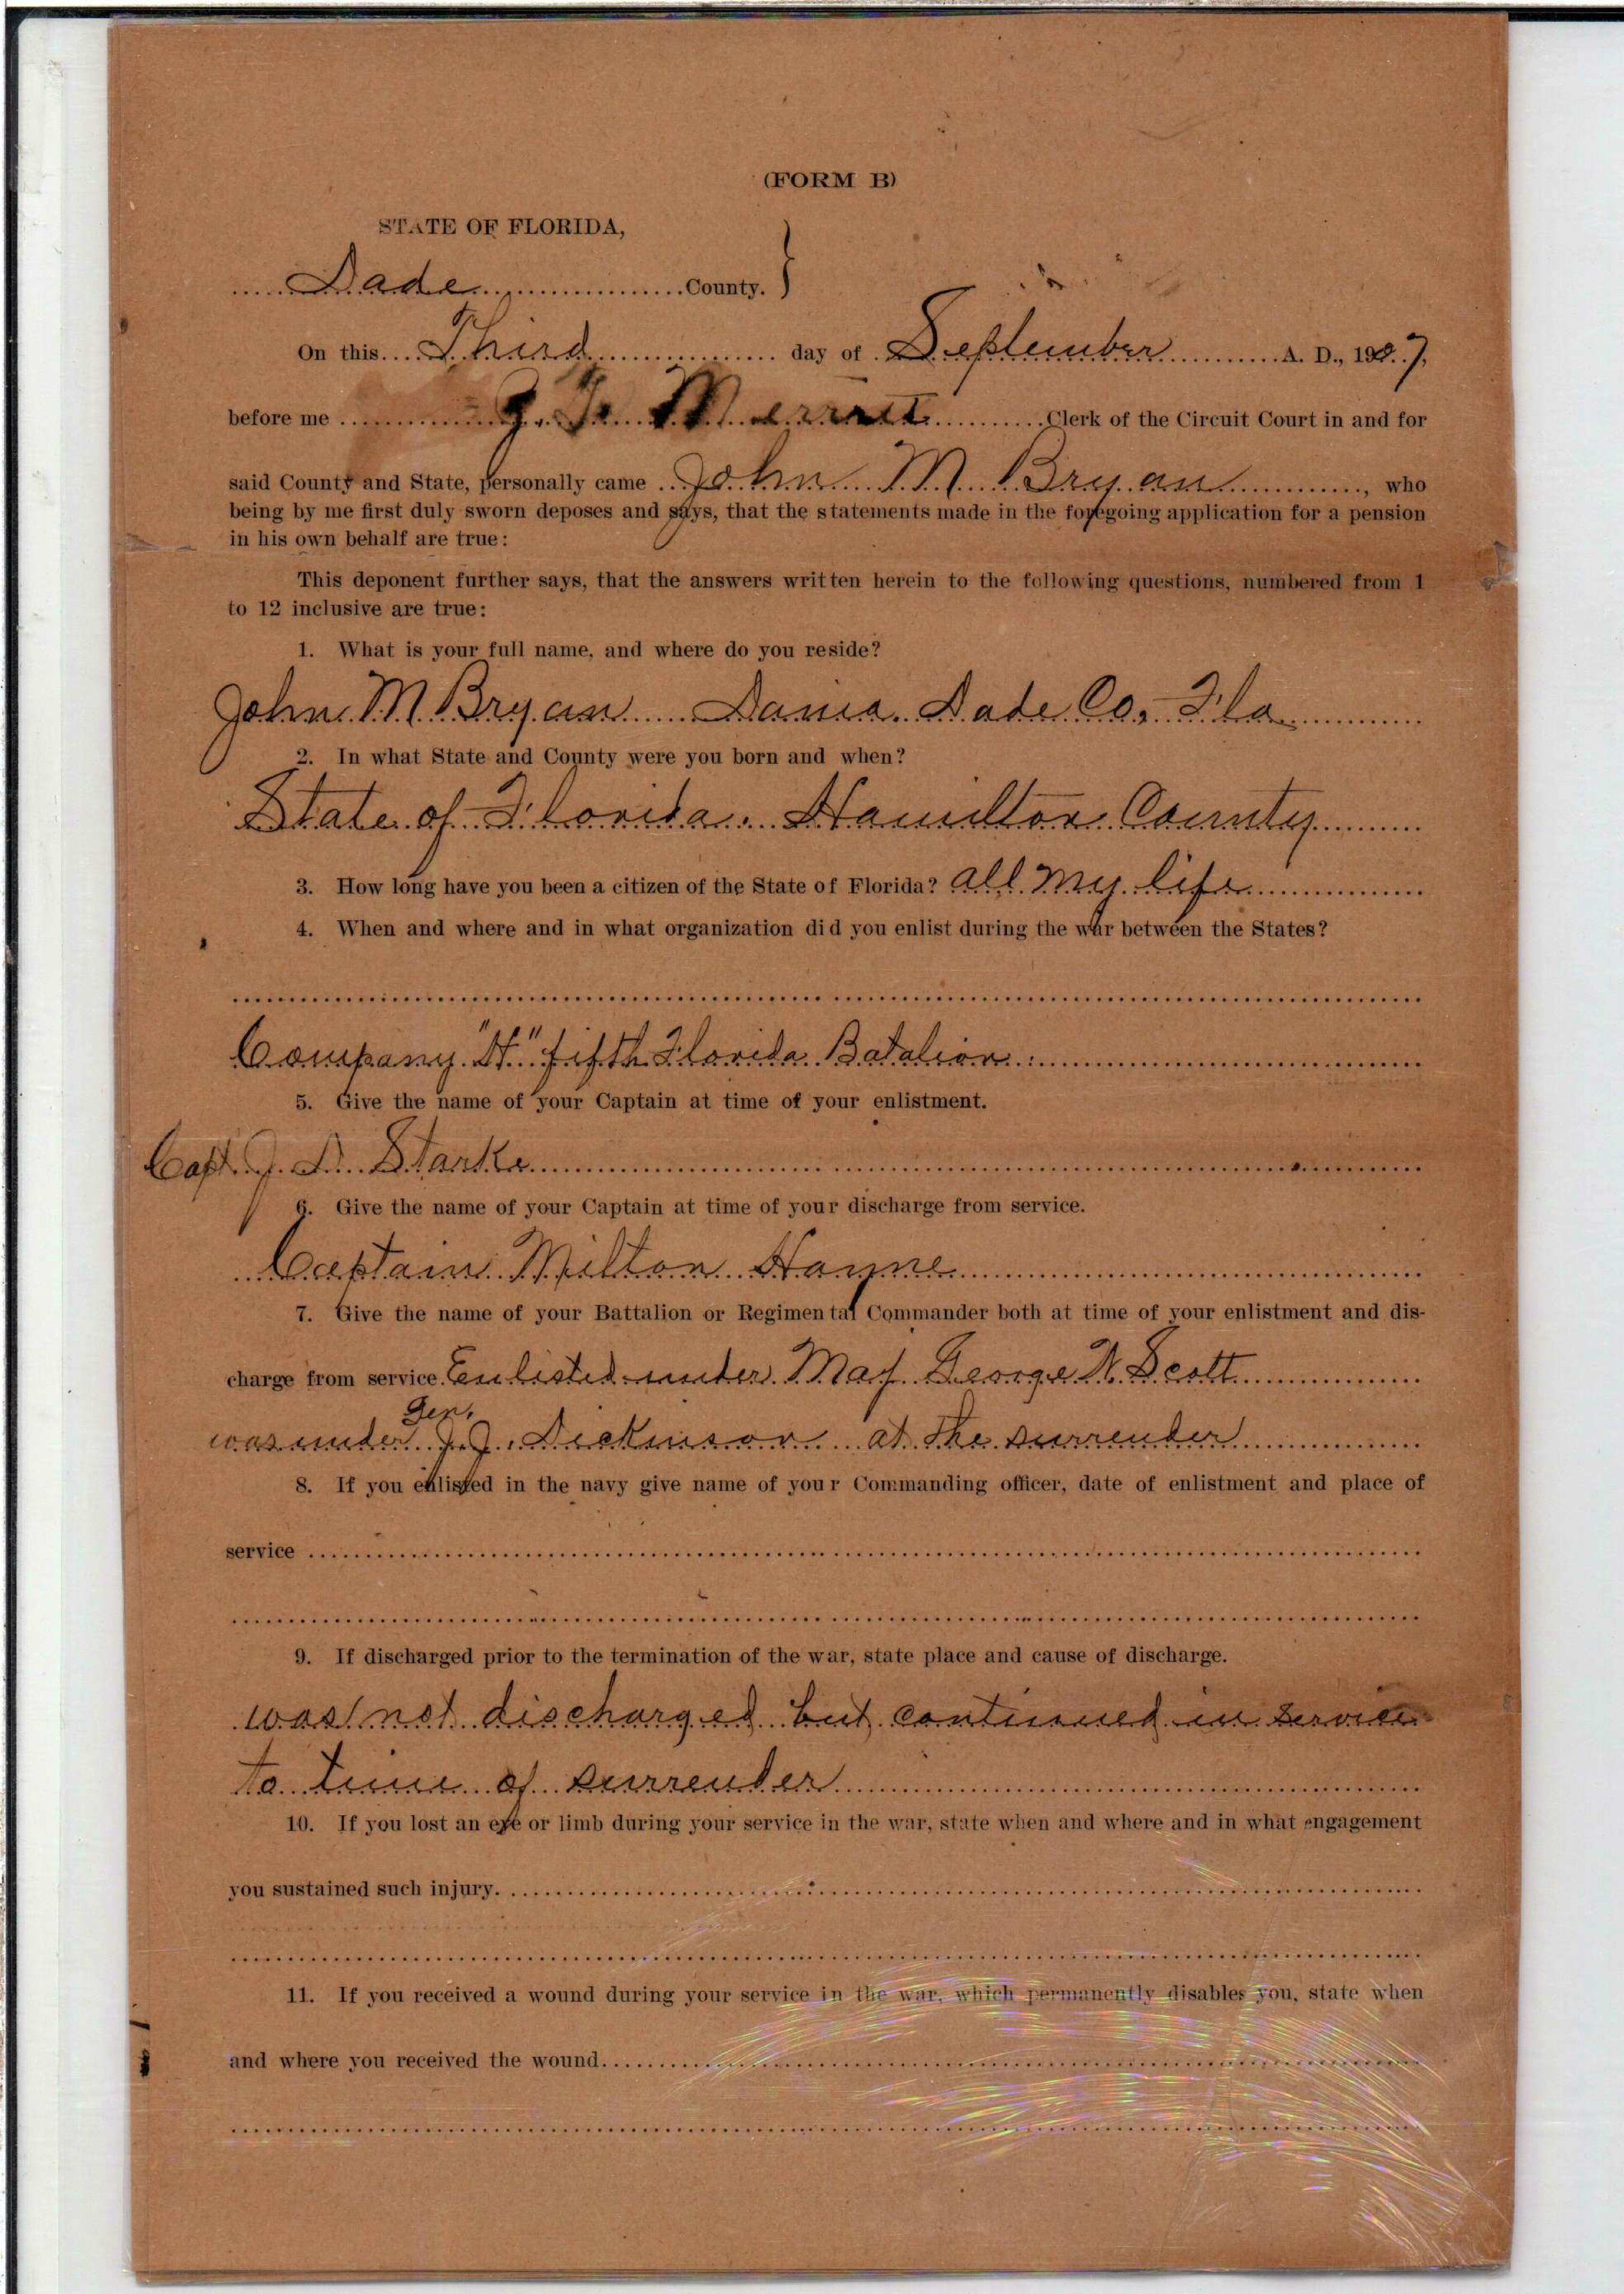 (FORM B)
STATE OF FLORIDA,
Dade County.
On this Third day of September A. D., 1907,
before me Merritt Clerk of the Circuit Court in and for
said County and State, personally came John M Bryan, who
being by me first duly sworn deposes and says, that the statements made in the foregoing application for a pension
in his own behalf are true:
This deponent further says, that the answers written herein to the following questions, numbered from 1
to 12 inclusive are true:
1. What is your full name, and where do you reside?
John M Bryan Dania Dade Co, Fla
2. In what State and County were you born and when?
State of Florida. Hamilton County
3. How long have you been a citizen of the State of Florida? all my life
4. When and where and in what organization did you enlist during the war between the States?
Company "H" fifth Florida Batalion
5. Give the name of your Captain at time of your enlistment.
Capt. J. D. Starke
6. Give the name of your Captain at time of your discharge from service.
Captain Milton
7. Give the name of your Battalion or Regimental Commander both at time of your enlistment and dis-
charge from service. Enlisted under Maj George W. Scott
Gen.
was under J. J. Dickinson at the surrender
8. If you enlisted in the navy give name of your Commanding officer, date of enlistment and place of
service
9. If discharged prior to the termination of the war, state place and cause of discharge.
was not discharged but continued in service
to time of surrender
10. If you lost an eye or limb during your service in the war, state when and where and in what engagement
you sustained such injury.
11. If you received a wound during your service in the war, which permanently disables you, state when
and where you received the wound